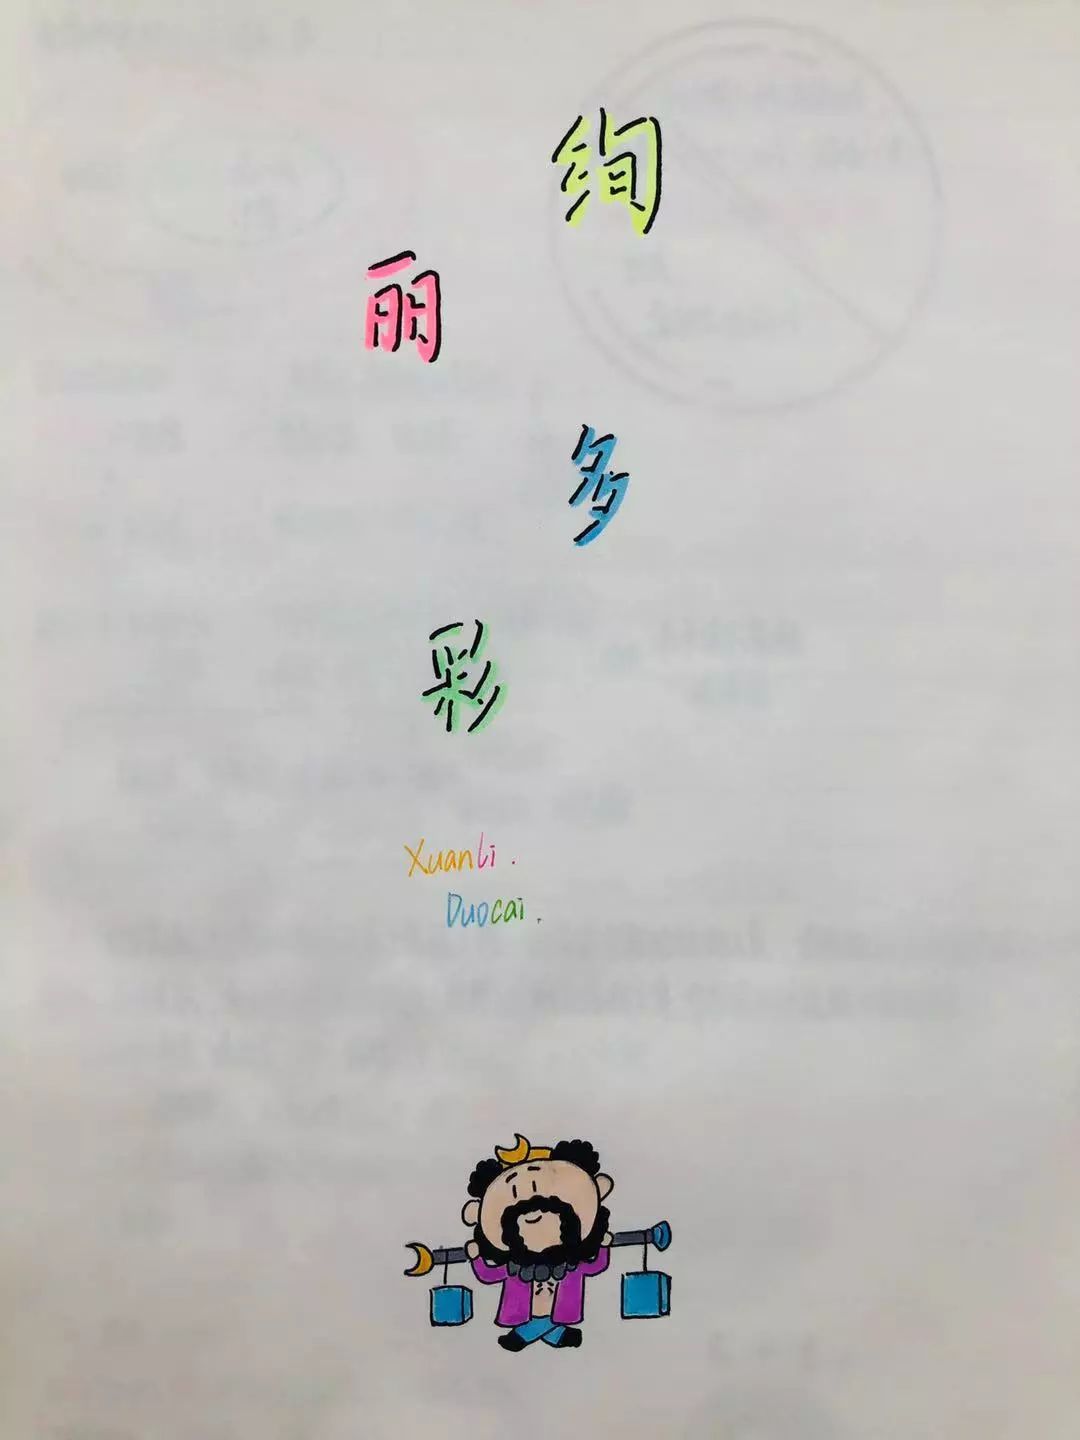 绚
丽
多
彩
XuanLi.
Duocai.